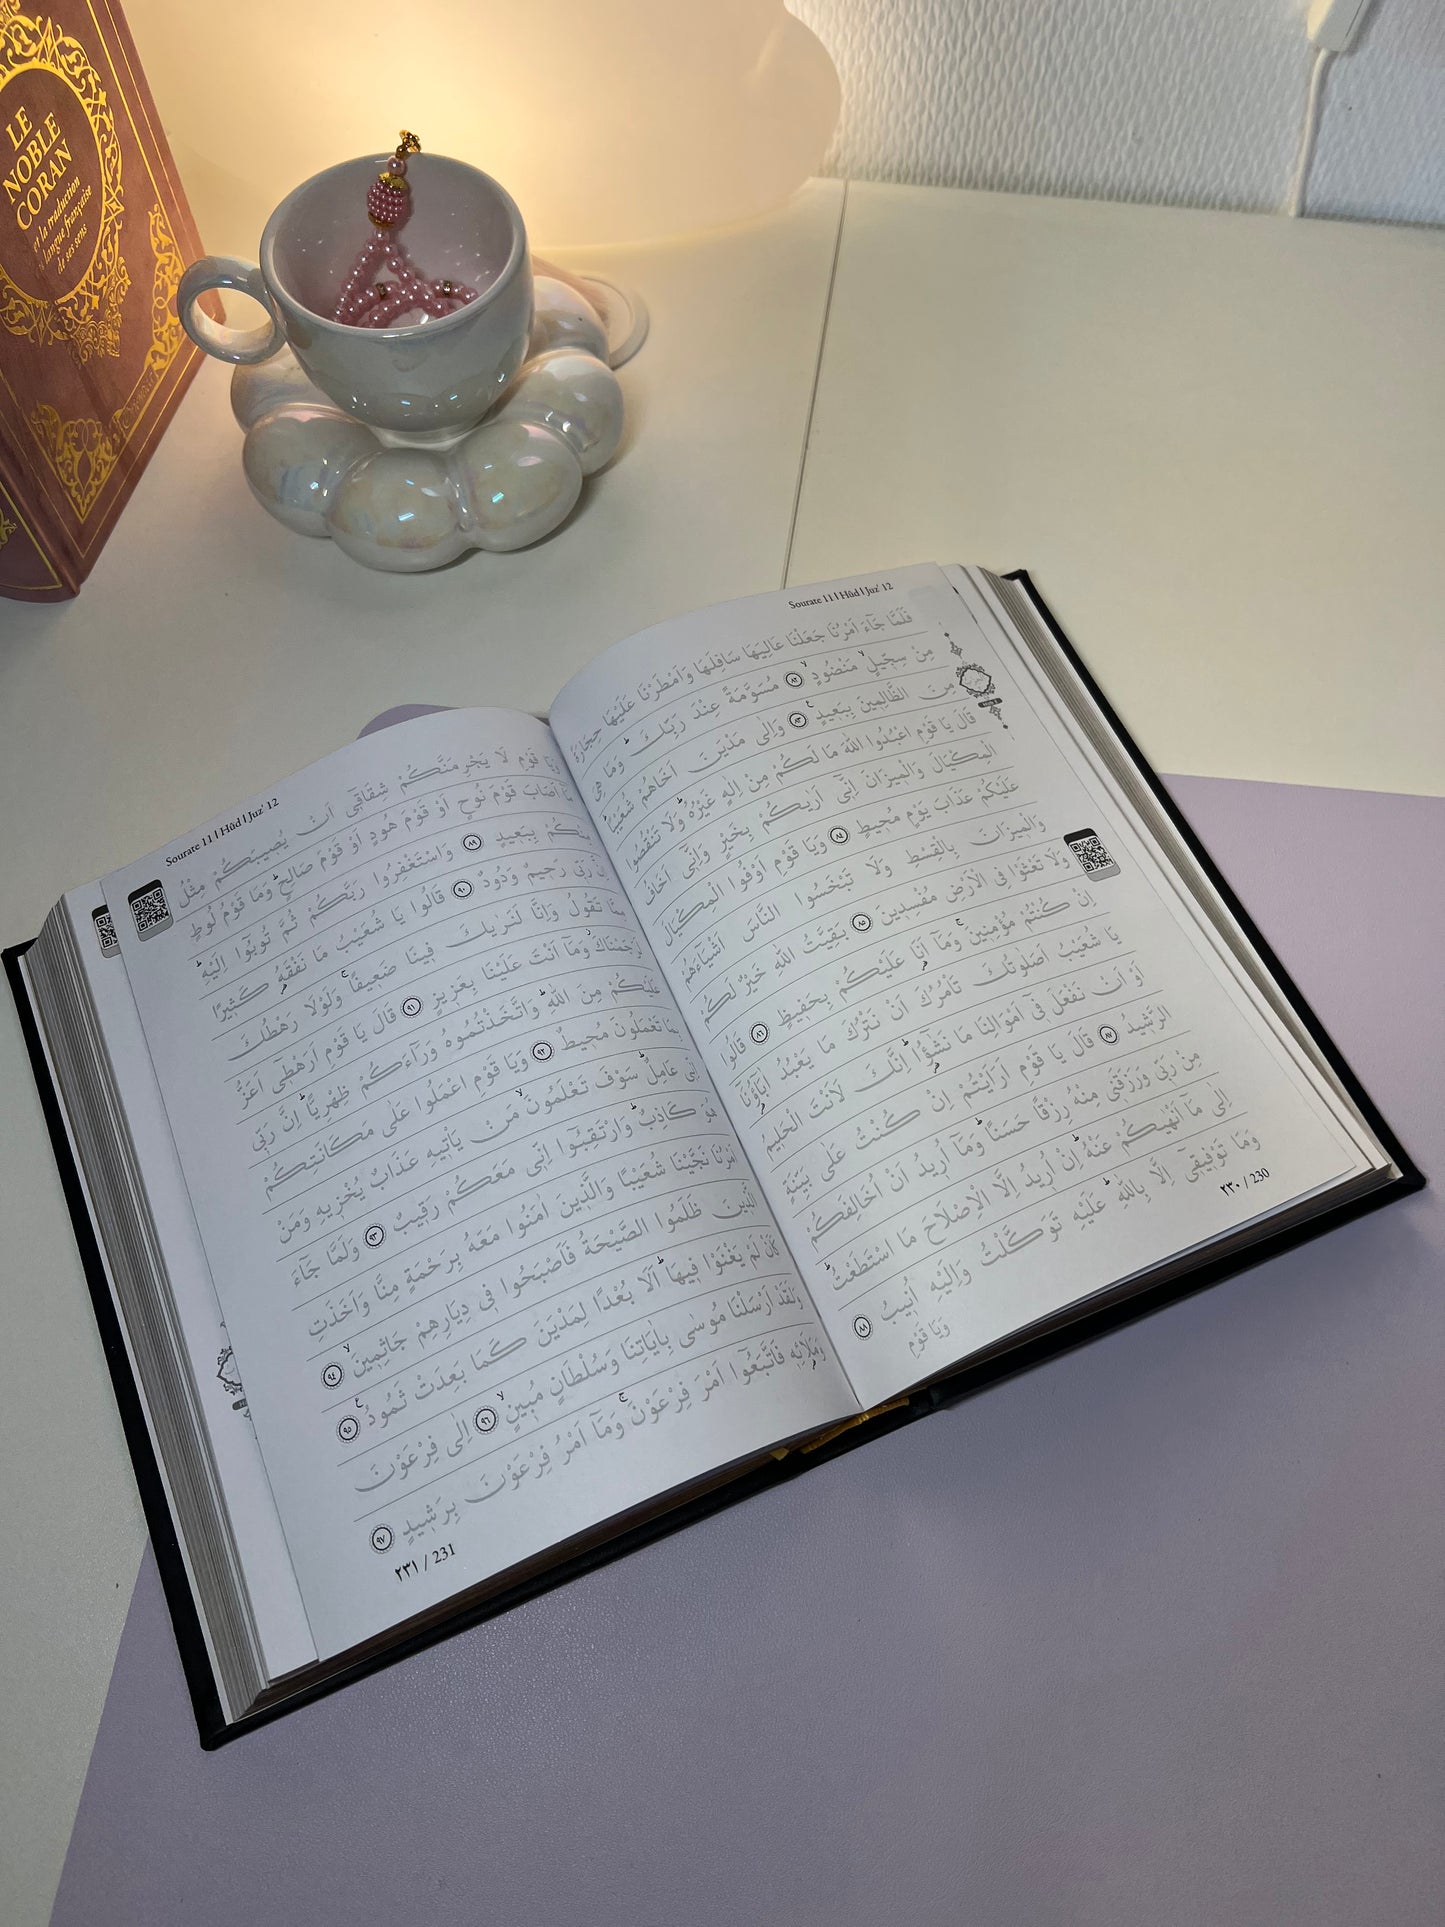 LE
NOBLE
CORAN
et la traduction
en langue française
de ses sens
Sourate 11 | Hûd | Juz' 12
فَلَمَّا جَٓاءَ اَمْرُنَا جَعَلْنَا عَالِيَهَا سَافِلَهَا وَاَمْطَرْنَا عَلَيْهَا حِجَارَةً
مِنْ سِجّ۪يلٍ مَنْضُودٍ ٨٢ مُسَوَّمَةً عِنْدَ رَبِّكَ وَمَا هِيَ
مِنَ الظَّالِم۪ينَ بِبَع۪يدٍ ٨٣ وَاِلٰى مَدْيَنَ اَخَاهُمْ شُعَيْبًا
قَالَ يَا قَوْمِ اعْبُدُوا اللّٰهَ مَا لَكُمْ مِنْ اِلٰهٍ غَيْرُهُ وَلَا تَنْقُصُوا
الْمِكْيَالَ وَالْم۪يزَانَ اِنّ۪ٓي اَرٰيكُمْ بِخَيْرٍ وَاِنّ۪ٓي اَخَافُ
عَلَيْكُمْ عَذَابَ يَوْمٍ مُح۪يطٍ ٨٤ وَيَا قَوْمِ اَوْفُوا الْمِكْيَالَ
وَالْم۪يزَانَ بِالْقِسْطِ وَلَا تَبْخَسُوا النَّاسَ اَشْيَٓاءَهُمْ
وَلَا تَعْثَوْا فِي الْاَرْضِ مُفْسِد۪ينَ ٨٥ بَقِيَّتُ اللّٰهِ خَيْرٌ لَكُمْ
اِنْ كُنْتُمْ مُؤْمِن۪ينَ وَمَٓا اَنَا عَلَيْكُمْ بِحَف۪يظٍ ٨٦ قَالُوا
يَا شُعَيْبُ اَصَلٰوتُكَ تَأْمُرُكَ اَنْ نَتْرُكَ مَا يَعْبُدُ اٰبَٓاؤُ۬نَٓا
اَوْ اَنْ نَفْعَلَ ف۪ٓي اَمْوَالِنَا مَا نَشٰٓؤُ۬ا اِنَّكَ لَاَنْتَ الْحَل۪يمُ
الرَّش۪يدُ ٨٧ قَالَ يَا قَوْمِ اَرَاَيْتُمْ اِنْ كُنْتُ عَلٰى بَيِّنَةٍ
مِنْ رَبّ۪ي وَرَزَقَن۪ي مِنْهُ رِزْقًا حَسَنًا وَمَٓا اُر۪يدُ اَنْ اُخَالِفَكُمْ
اِلٰى مَٓا اَنْهٰيكُمْ عَنْهُ اِنْ اُر۪يدُ اِلَّا الْاِصْلَاحَ مَا اسْتَطَعْتُ
وَمَا تَوْف۪يق۪ٓي اِلَّا بِاللّٰهِ عَلَيْهِ تَوَكَّلْتُ وَاِلَيْهِ اُن۪يبُ ٨٨
وَيَا قَوْمِ
٢٣٠ / 230
Sourate 11 | Hûd | Juz' 12
وَيَا قَوْمِ لَا يَجْرِمَنَّكُمْ شِقَاق۪ٓي اَنْ يُص۪يبَكُمْ مِثْلُ
مَٓا اَصَابَ قَوْمَ نُوحٍ اَوْ قَوْمَ هُودٍ اَوْ قَوْمَ صَالِحٍ وَمَا قَوْمُ لُوطٍ
مِنْكُمْ بِبَع۪يدٍ ٨٩ وَاسْتَغْفِرُوا رَبَّكُمْ ثُمَّ تُوبُٓوا اِلَيْهِ
اِنَّ رَبّ۪ي رَح۪يمٌ وَدُودٌ ٩٠ قَالُوا يَا شُعَيْبُ مَا نَفْقَهُ كَث۪يرًا
مِمَّا تَقُولُ وَاِنَّا لَنَرٰيكَ ف۪ينَا ضَع۪يفًا وَلَوْلَا رَهْطُكَ
لَرَجَمْنَاكَ وَمَٓا اَنْتَ عَلَيْنَا بِعَز۪يزٍ ٩١ قَالَ يَا قَوْمِ اَرَهْط۪ٓي اَعَزُّ
عَلَيْكُمْ مِنَ اللّٰهِ وَاتَّخَذْتُمُوهُ وَرَٓاءَكُمْ ظِهْرِيًّا اِنَّ رَبّ۪ي
بِمَا تَعْمَلُونَ مُح۪يطٌ ٩٢ وَيَا قَوْمِ اعْمَلُوا عَلٰى مَكَانَتِكُمْ
اِنّ۪ي عَامِلٌ سَوْفَ تَعْلَمُونَ مَنْ يَأْت۪يهِ عَذَابٌ يُخْز۪يهِ وَمَنْ
هُوَ كَاذِبٌ وَارْتَقِبُٓوا اِنّ۪ي مَعَكُمْ رَق۪يبٌ ٩٣ وَلَمَّا جَٓاءَ
اَمْرُنَا نَجَّيْنَا شُعَيْبًا وَالَّذ۪ينَ اٰمَنُوا مَعَهُ بِرَحْمَةٍ مِنَّا وَاَخَذَتِ
الَّذ۪ينَ ظَلَمُوا الصَّيْحَةُ فَاَصْبَحُوا ف۪ي دِيَارِهِمْ جَاثِم۪ينَ ٩٤
كَاَنْ لَمْ يَغْنَوْا ف۪يهَا اَلَا بُعْدًا لِمَدْيَنَ كَمَا بَعِدَتْ ثَمُودُ ٩٥
وَلَقَدْ اَرْسَلْنَا مُوسٰى بِاٰيَاتِنَا وَسُلْطَانٍ مُب۪ينٍ ٩٦ اِلٰى فِرْعَوْنَ
وَمَلَا۬ئِه۪ فَاتَّبَعُٓوا اَمْرَ فِرْعَوْنَ وَمَٓا اَمْرُ فِرْعَوْنَ بِرَش۪يدٍ ٩٧
٢٣١ / 231